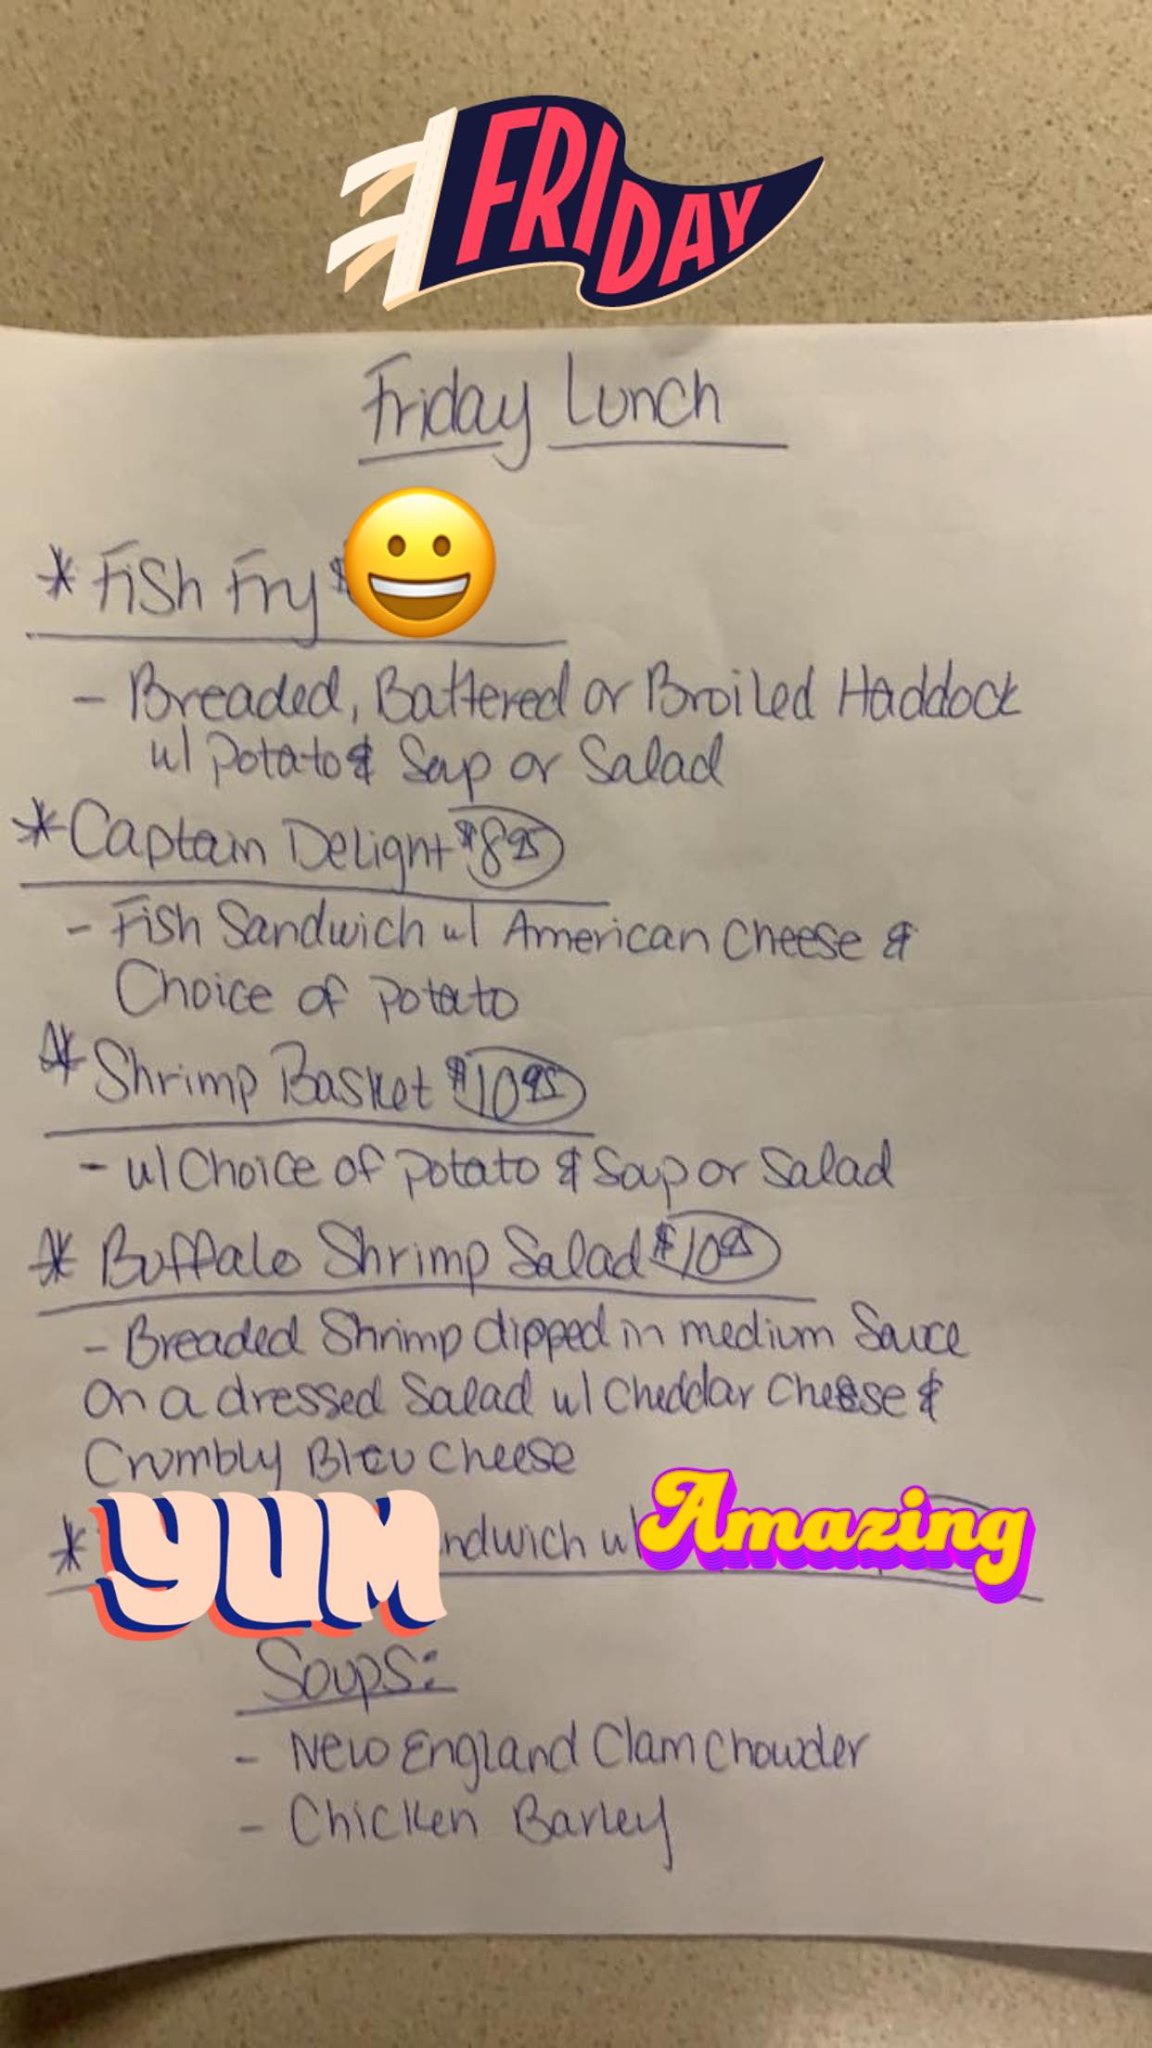 FRIDAY
Friday Lunch
* Fish Fry $
- Breaded, Battered or Broiled Haddock
w/ Potato & Soup or Salad
* Captain Delight $8.95
- Fish Sandwich w/ American Cheese &
Choice of Potato
* Shrimp Basket $10.95
- w/ Choice of Potato & Soup or Salad
* Buffalo Shrimp Salad $10.95
- Breaded Shrimp dipped in medium Sauce
on a dressed Salad w/ Cheddar Cheese &
Crumbly Bleu Cheese
* YUM ndwich w/ Amazing
Soups:
- New England Clam Chowder
- Chicken Barley